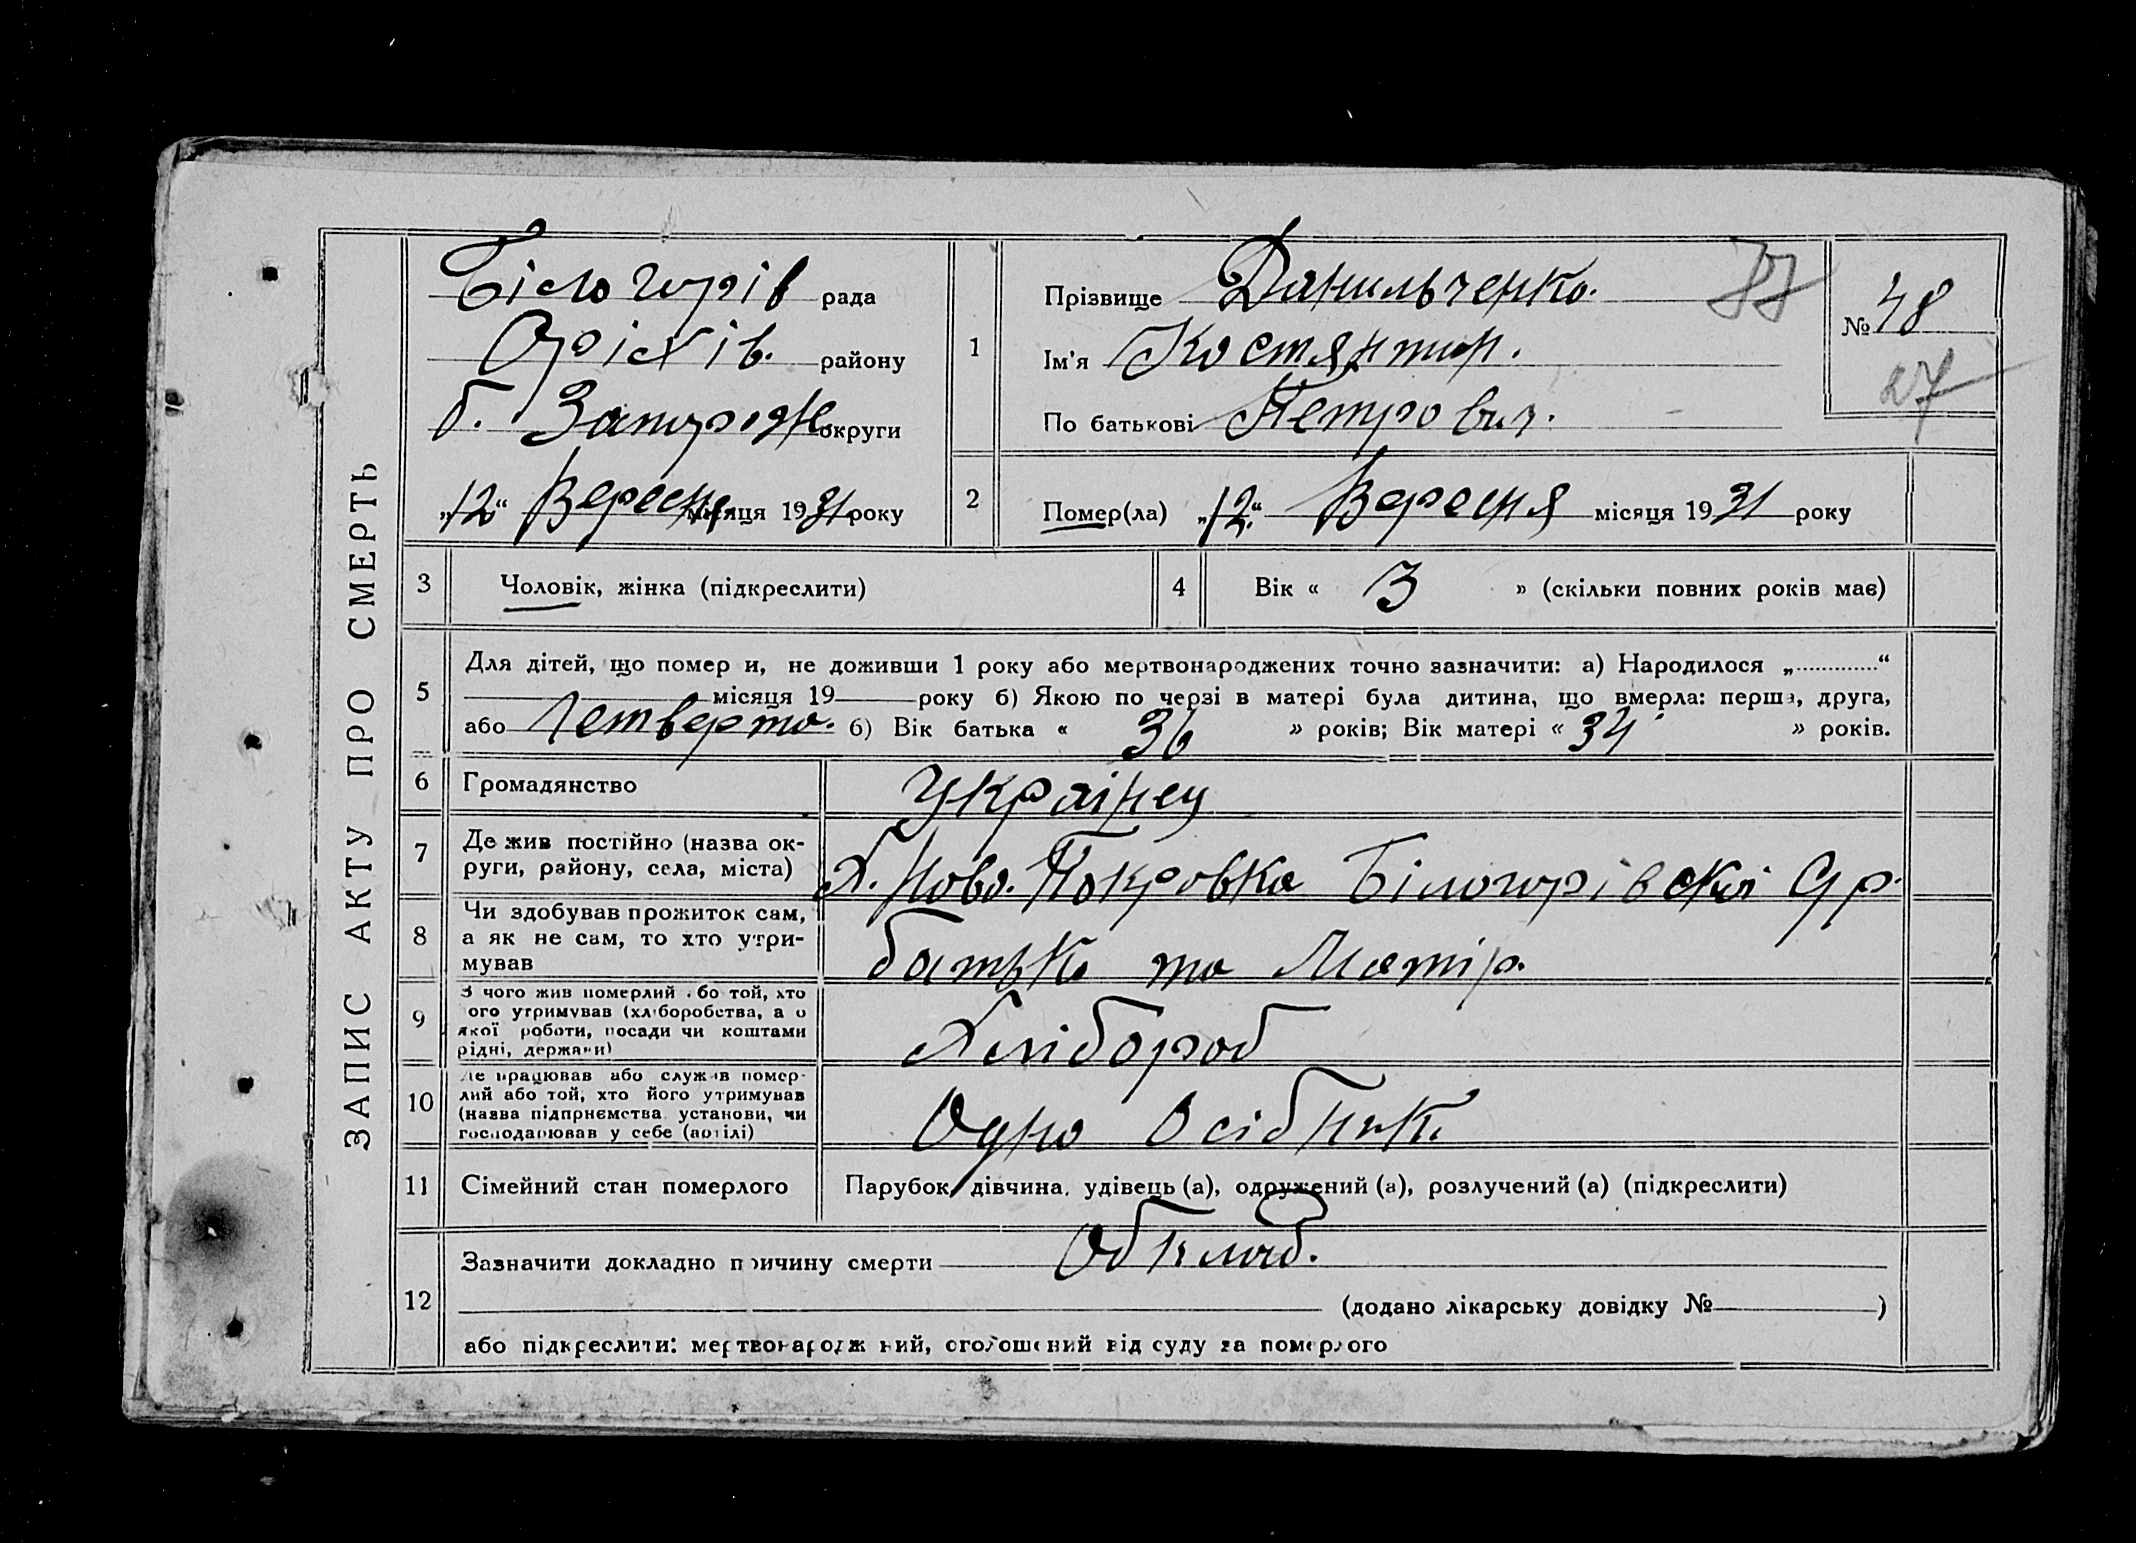 ЗАПИС АКТУ ПРО СМЕРТЬ
Білогорів рада
Оріхів. району
б. Запоріж округи
„12“ Вересня місяця 1931 року
1
Прізвище Данильченко.
Ім'я Костянтин.
По батькові Петрович.
77
№ 48
27
2
Помер(ла) „12“ Вересня місяця 1931 року
3
Чоловік, жінка (підкреслити)
4
Вік « 3 » (скільки повних років має)
5
Для дітей, що помер и, не доживши 1 року або мертвонароджених точно зазначити: а) Народилося „............“
місяця 19 року б) Якою по черзі в матері була дитина, що вмерла: перша, друга,
або Четверта. б) Вік батька « 36 » років; Вік матері « 34 » років.
6
Громадянство
Українец
7
Де жив постійно (назва ок-
руги, району, села, міста)
Х. Ново. Покровка Білогорівскої
8
Чи здобував прожиток сам,
а як не сам, то хто утри-
мував
батько та Матір.
9
З чого жив померлий або той, хто
ого утримував (хліборобства, а о
якої роботи, посади чи коштами
рідні, держави)
Хлібороб
10
Де працював або служив помер-
лий або той, хто його утримував
(назва підприємства, установи, чи
господарював у себе (артілі)
Одно Осібник
11
Сімейний стан померлого
Парубок, дівчина, удівець (а), одружений (а), розлучений (а) (підкреслити)
12
Зазначити докладно причину смерти
(додано лікарську довідку № )
або підкреслити: мертвонародж ний, оголошений від суду за померлого